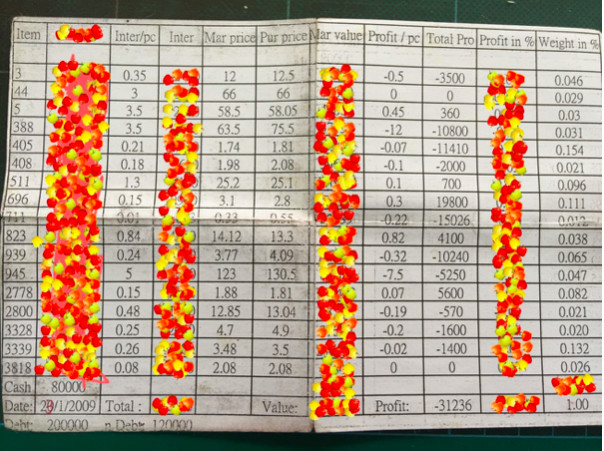 Item Inter/pc Inter Mar price Pur price Mar value Profit / pc Total Pro Profit in % Weight in %
3 0.35 12 12.5 -0.5 -3500 0.046
44 3 66 66 0 0 0.029
5 3.5 58.5 58.05 0.45 360 0.03
388 3.5 63.5 75.5 -12 -10800 0.031
405 0.21 1.74 1.81 -0.07 -11410 0.154
408 0.18 1.98 2.08 -0.1 -2000 0.021
511 1.3 25.2 25.1 0.1 700 0.096
696 0.15 3.1 2.8 0.3 19800 0.111
711 0.01 0.33 0.55 -0.22 -15026 0.012
823 0.84 14.12 13.3 0.82 4100 0.038
939 0.24 3.77 4.09 -0.32 -10240 0.065
945 5 123 130.5 -7.5 -5250 0.047
2778 0.15 1.88 1.81 0.07 5600 0.082
2800 0.48 12.85 13.04 -0.19 -570 0.021
3328 0.25 4.7 4.9 -0.2 -1600 0.020
3339 0.26 3.48 3.5 -0.02 -1400 0.132
3818 0.08 2.08 2.08 0 0 0.026
Cash 80000
Date: /1/2009 Total : Value: Profit: -31236 1.00
Debt: 200000 n.Debt 120000